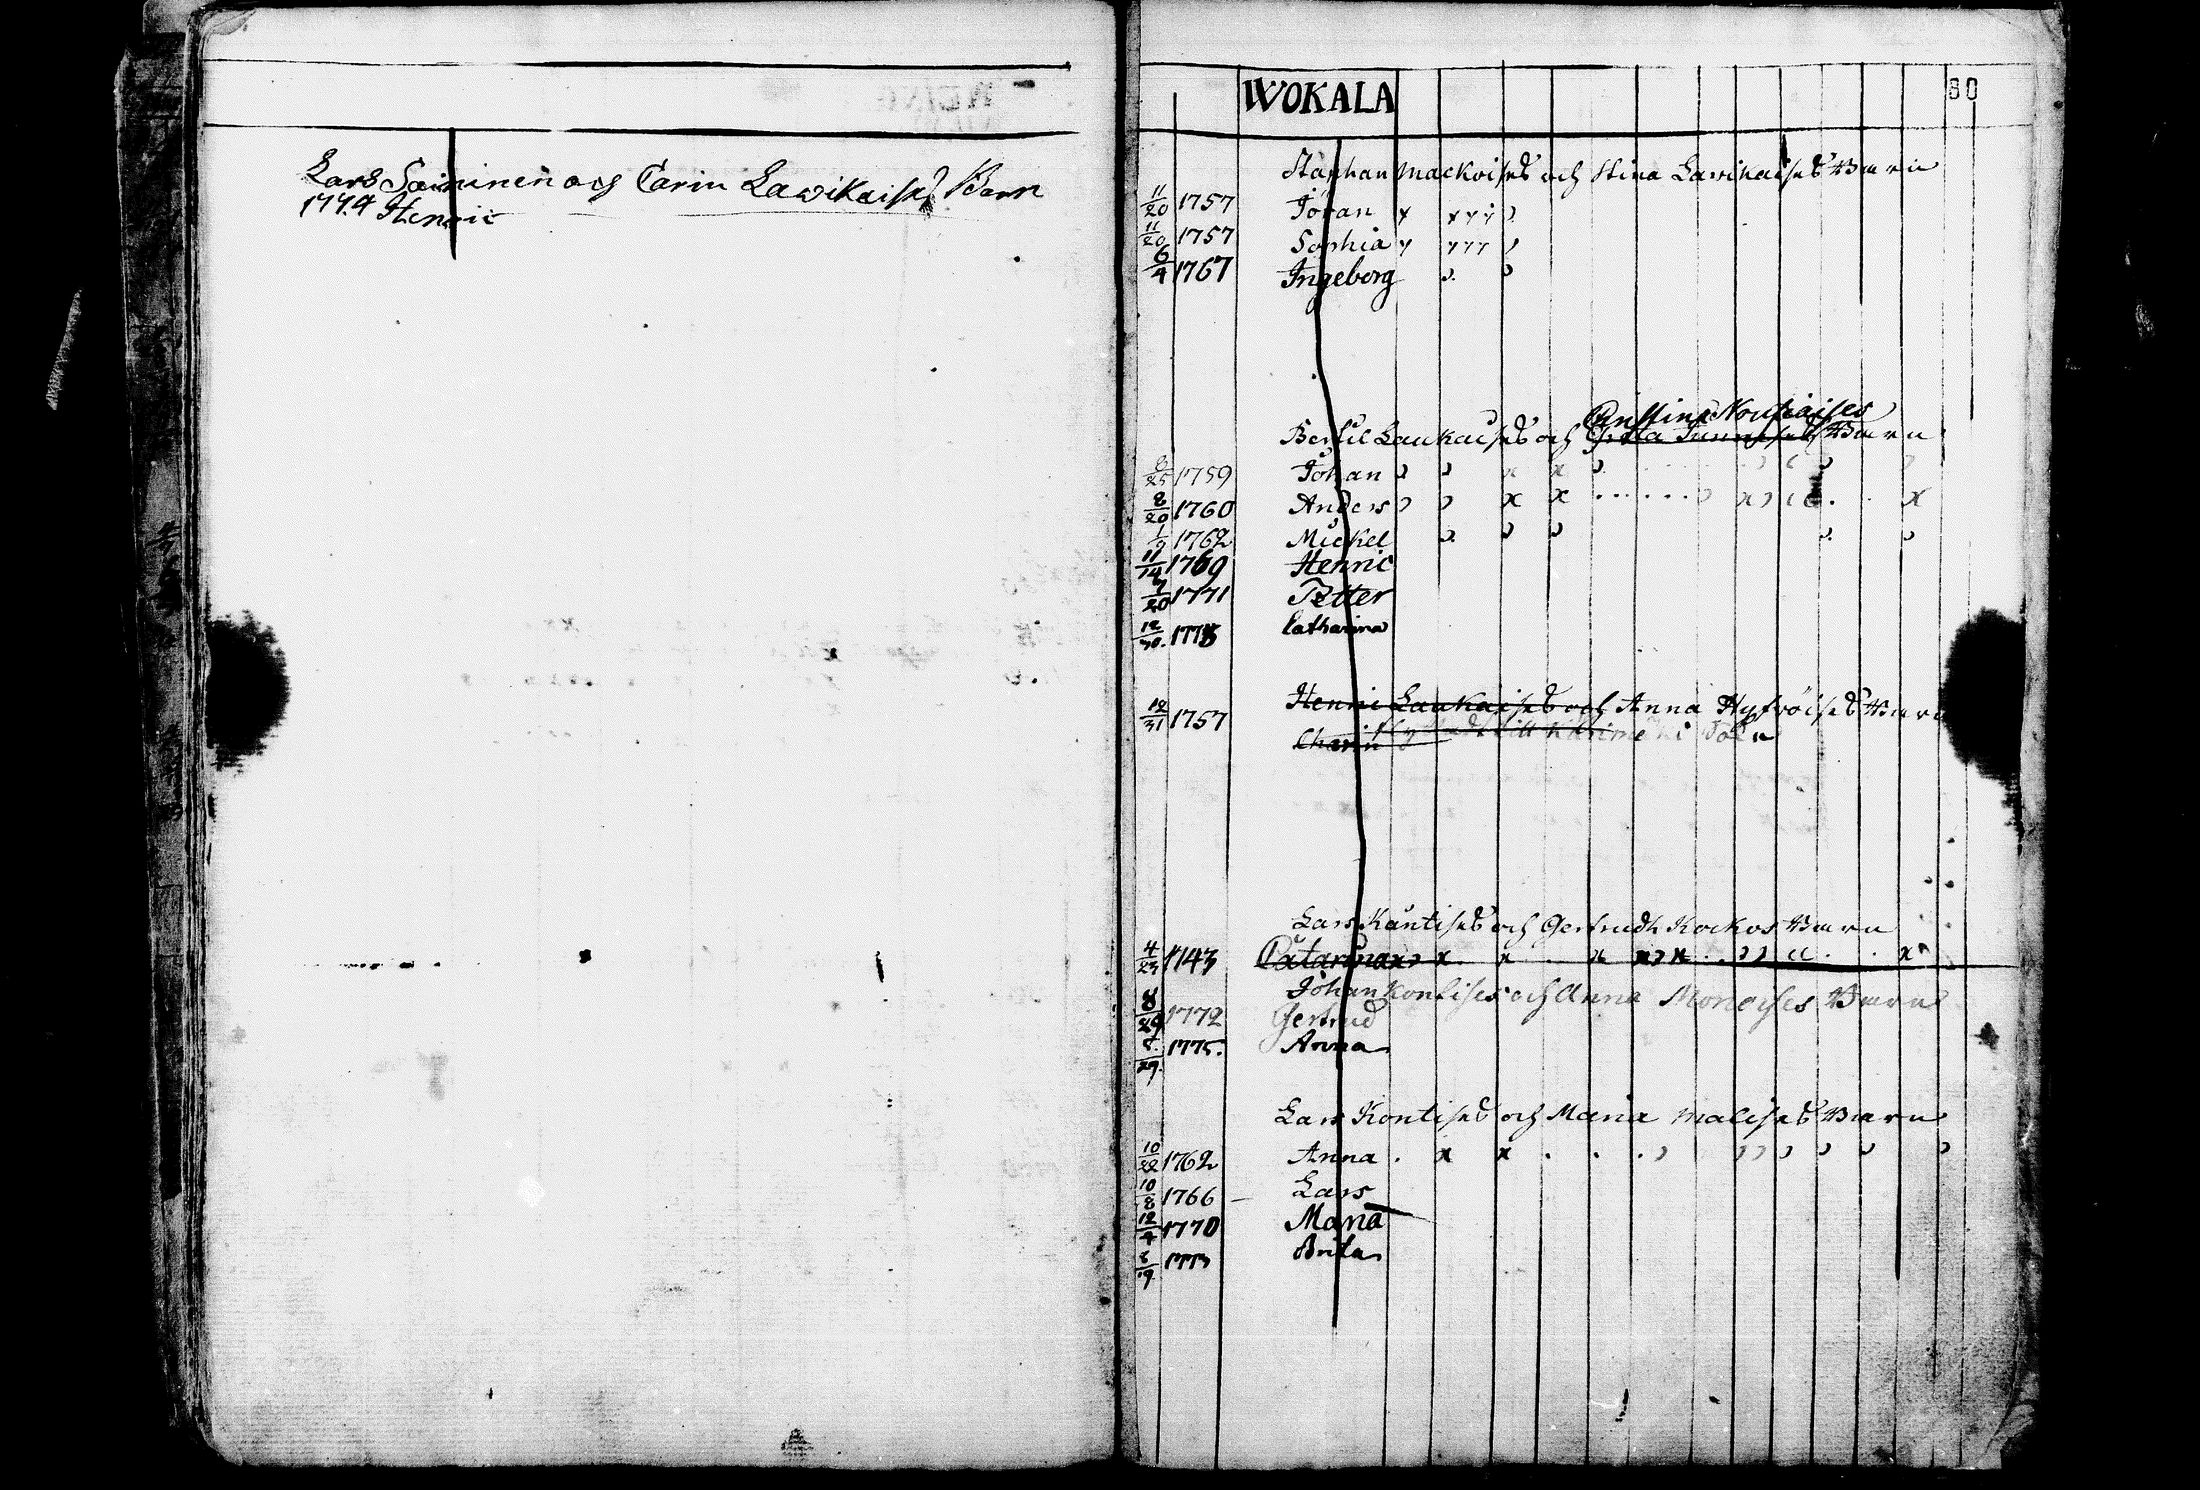 Lars Saininen och Carin Lawikaised Barn
1774 Henric
WOKALA
80
Staphan Mackoised och Stina Lavikaised Barn
11/20 1757 Jöran x x y y
11/20 1757 Sophia y y y y
6/4 1767 Ingeborg
Christina Nousiaises
Bertil Laukaised och Barn
8/25 1759 Johan
8/20 1760 Anders
1/9 1762 Mickel
11/14 1769 Henric
7/20 1771 Petter
12/30. 1775 Catharina
Henric Laukaised och Anna Hyfröised Barn
12/31 1757 Charin till
Lars Kantised och Gertrudh Kockos Barn
4/23 1743 Catarina
Johan Kontises och Anna Monoises Barn
8/29 1772 Gertrud
8/29. 1775. Anna
Lars Kontised och Maria Malised Barn
10/22 1762 Anna
10/8 1766 Lars
12/4 1770 Maria
8/19. 1773 Brita